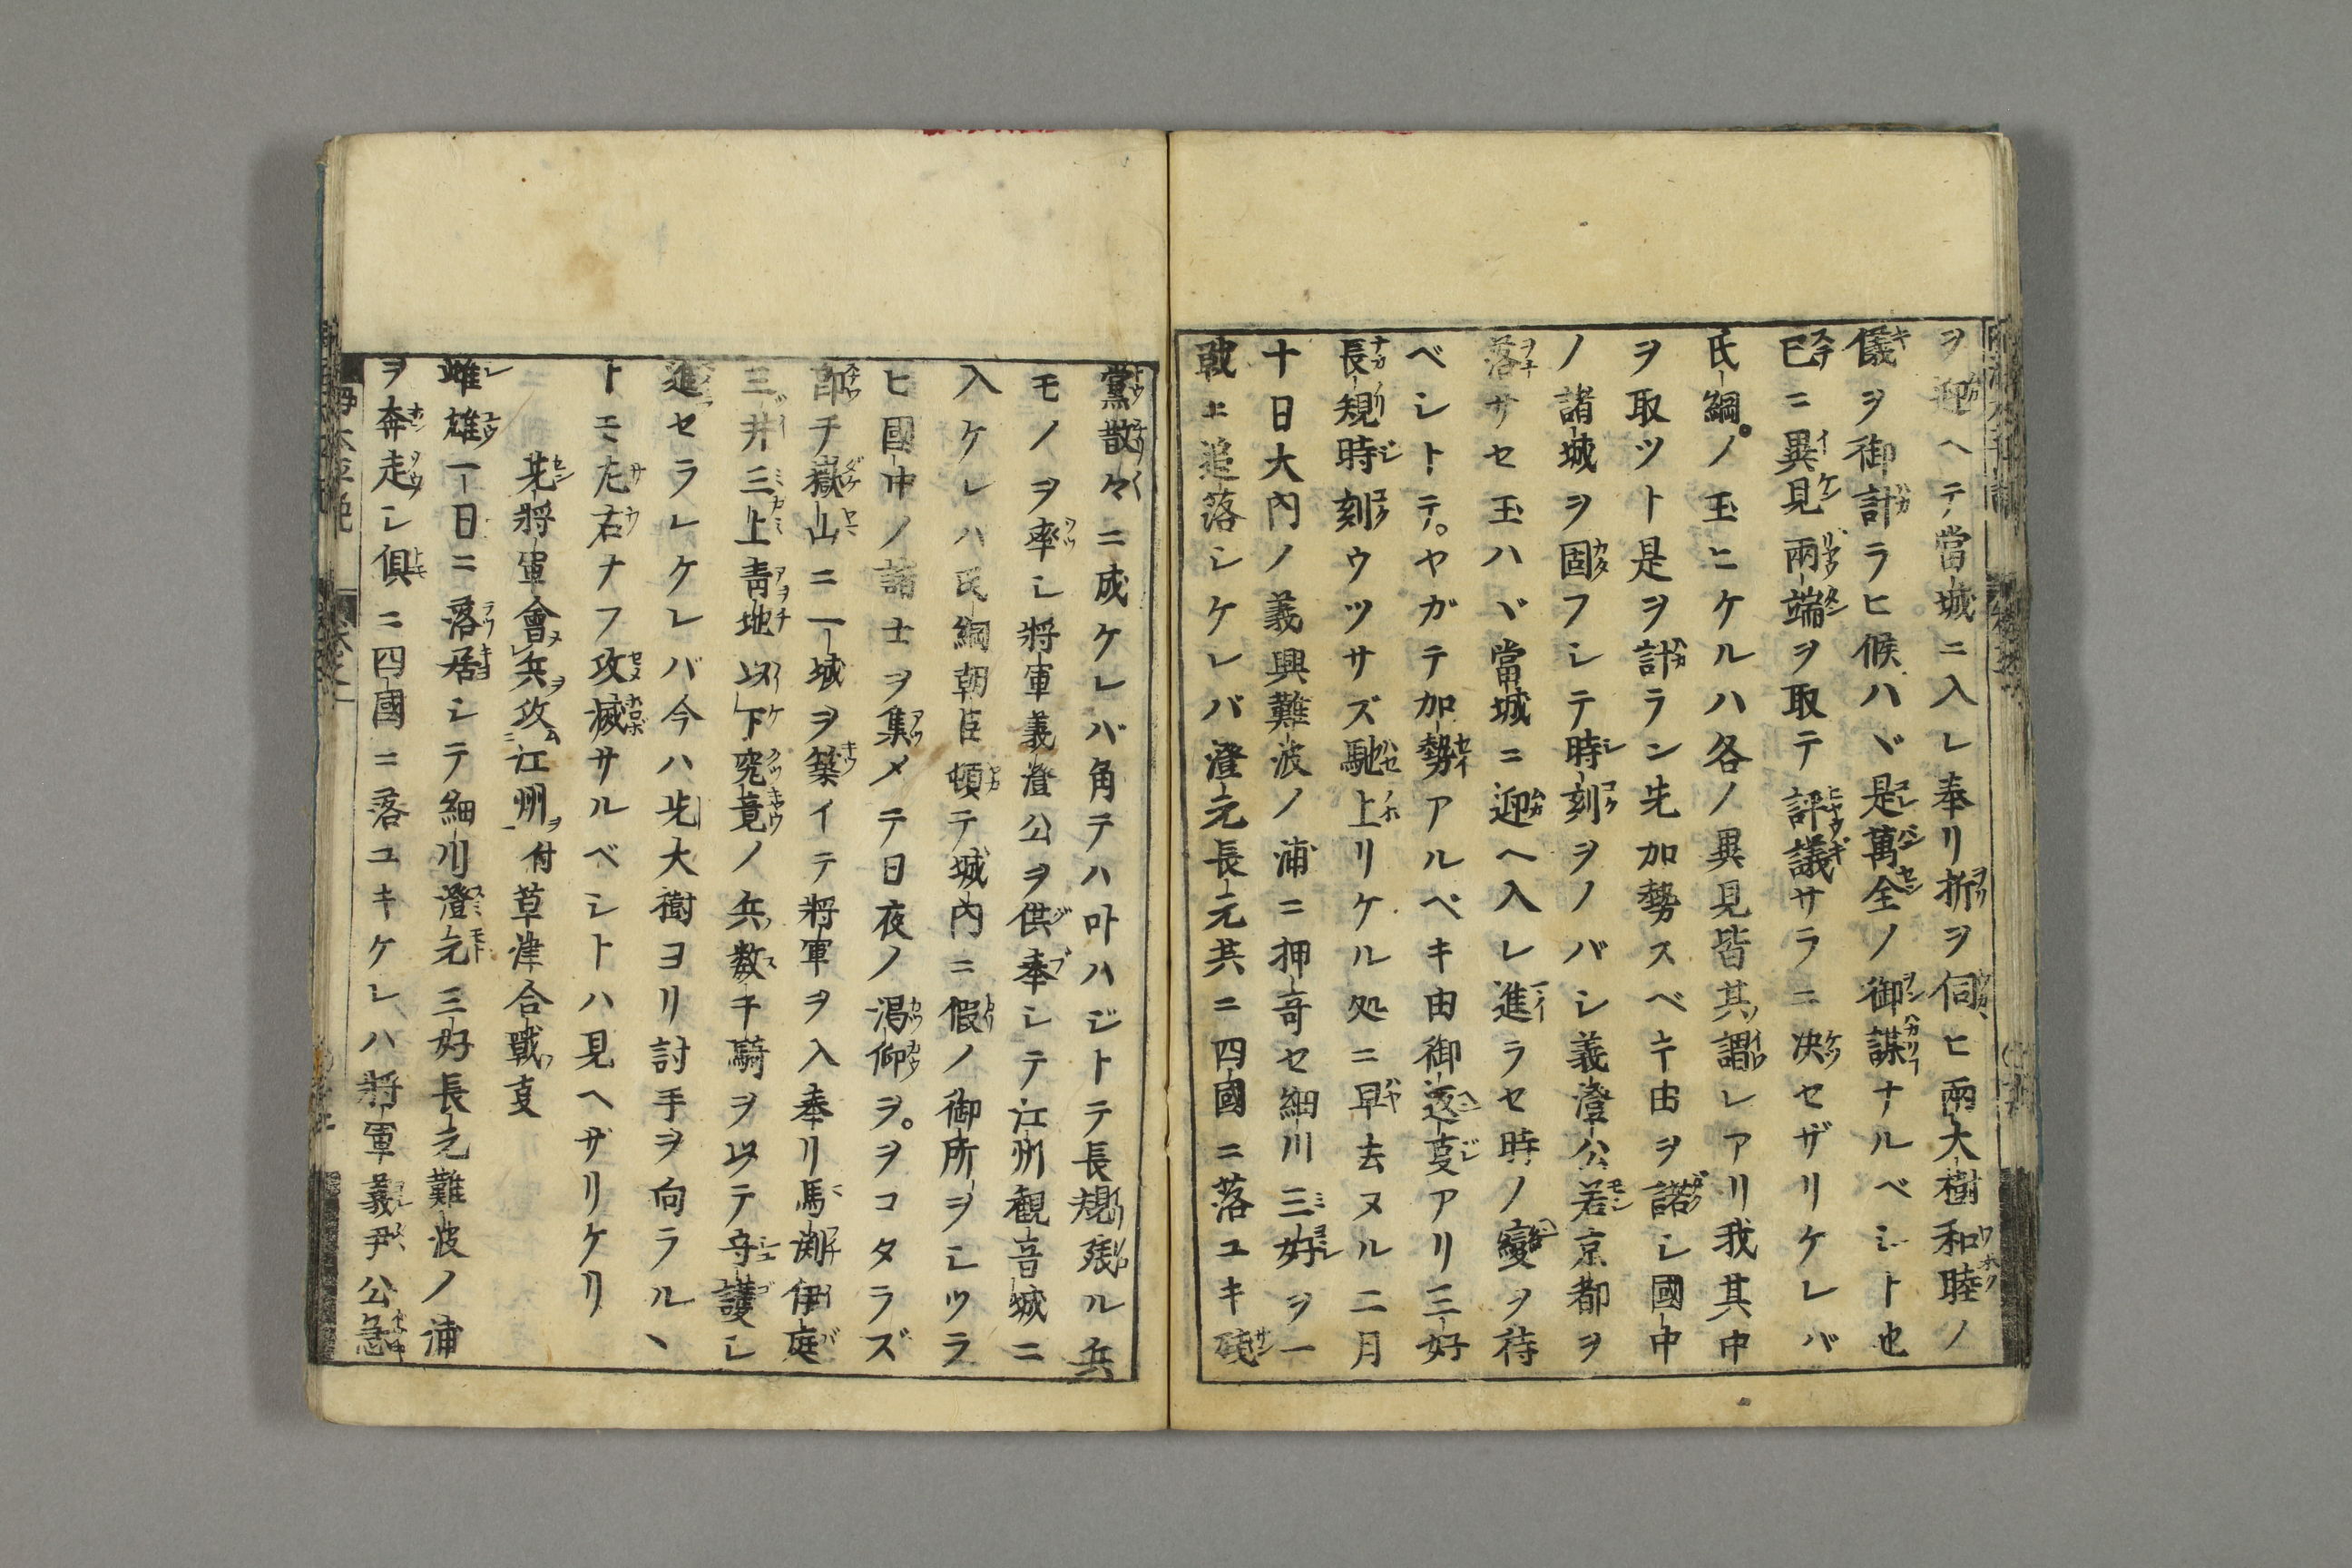 ヲ迎ヘテ當城ニ入レ奉リ折ヲ伺ヒ兩大樹和睦ノ
儀ヲ御計ラヒ候ハヾ是萬全ノ御謀ナルベシト也
已ニ異見兩端ヲ取テ評議サラニ决セザリケレバ
氏綱ノ玉ヒケルハ各ノ異見皆其謂レアリ我其中
ヲ取ツト是ヲ計ラン先加勢スベキ由ヲ諾シ國中
ノ諸城ヲ固フシテ時刻ヲノバシ義澄公若京都ヲ
落サセ玉ハヾ當城ニ迎ヘ入レ進ラセ時ノ變ヲ待
ベシトテ。ヤガテ加勢アルベキ由御返亊アリ三好
長規時刻ウツサズ馳上リケル処ニ早去ヌル二月
十日大内ノ義興難波ノ浦ニ押寄セ細川三好ヲ一
戰ニ追落シケレバ澄元長元共ニ四國ニ落ユキ殘
黨散々ニ成ケレバ角テハ叶ハジトテ長規殘ル兵
モノヲ率シ將軍義澄公ヲ供奉シテ江州観音城ニ
入ケレハ氏綱朝臣頓テ城内ニ假ノ御所ヲシツラ
ヒ國中ノ諸士ヲ集メテ日夜ノ渇仰ヲ。ヲコタラズ
即チ嶽山ニ一城ヲ築イテ將軍ヲ入奉リ馬渕伊庭
三井三上青地以下究竟ノ兵数千騎ヲ以テ守護シ
進セラレケレバ今ハ先大樹ヨリ討手ヲ向ラルヽ
トモ左右ナフ攻滅サルベシトハ見ヘザリケリ
先將軍會兵攻江州付草津合戰亊
雌雄一日ニ落居シテ細川澄元三好長元難波ノ浦
ヲ奔走シ倶ニ四國ニ落ユキケレハ將軍義尹公急